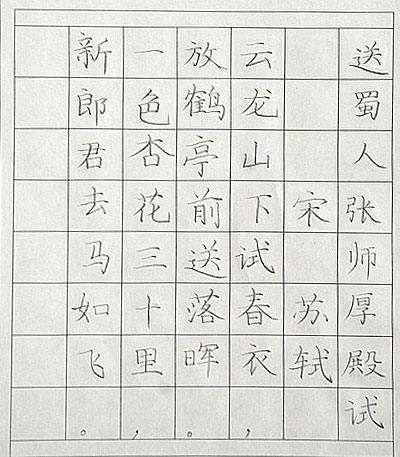 送蜀人张师厚殿试
宋苏轼
云龙山下试春衣，
放鹤亭前送落晖。
一色杏花三十里，
新郎君去马如飞。